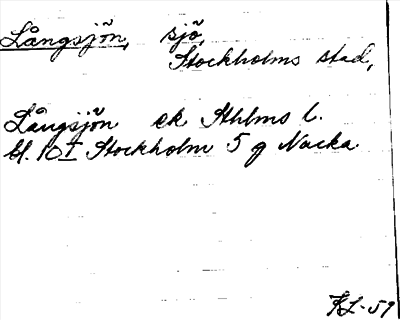 Långsjön, sjö,
Stockholms stad,
Långsjön ek Sthlms l.
bl. 10 I Stockholm 5 g Nacka
KL-59